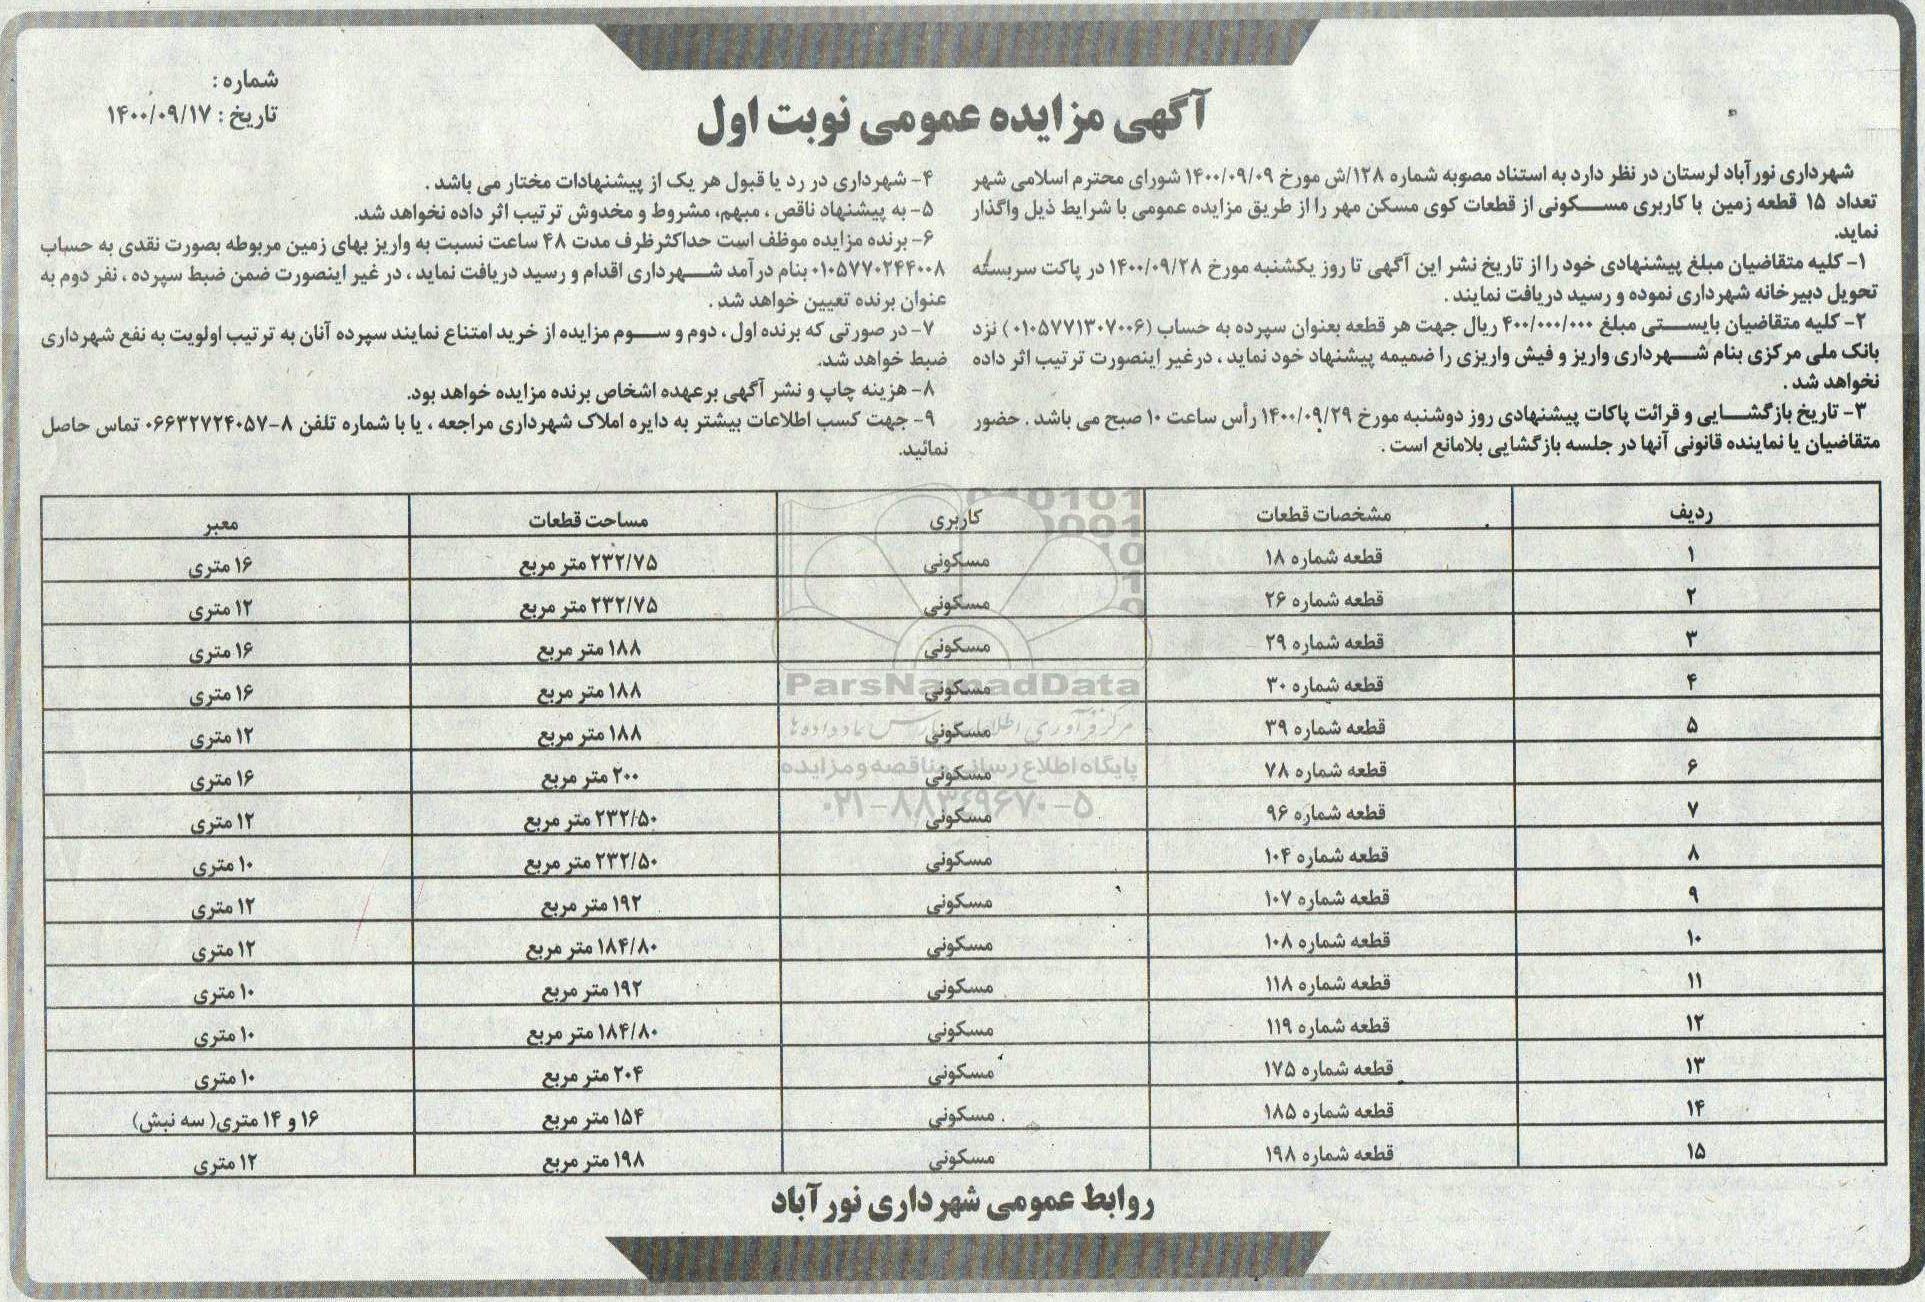 شماره :
تاریخ : ۱۴۰۰/۰۹/۱۷
آگهی مزایده عمومی نوبت اول
شهرداری نورآباد لرستان در نظر دارد به استناد مصوبه شماره ۱۲۸/ش مورخ ۱۴۰۰/۰۹/۰۹ شورای محترم اسلامی شهر
تعداد ۱۵ قطعه زمین با کاربری مسکونی از قطعات کوی مسکن مهر را از طریق مزایده عمومی با شرایط ذیل واگذار
نماید.
۱- کلیه متقاضیان مبلغ پیشنهادی خود را از تاریخ نشر این آگهی تا روز یکشنبه مورخ ۱۴۰۰/۰۹/۲۸ در پاکت سربسته
تحویل دبیرخانه شهرداری نموده و رسید دریافت نمایند .
۲- کلیه متقاضیان بایستی مبلغ ۴۰۰/۰۰۰/۰۰۰ ریال جهت هر قطعه بعنوان سپرده به حساب (۰۱۰۵۷۷۱۳۰۷۰۰۶) نزد
بانک ملی مرکزی بنام شهرداری واریز و فیش واریزی را ضمیمه پیشنهاد خود نماید ، درغیر اینصورت ترتیب اثر داده
نخواهد شد .
۳- تاریخ بازگشایی و قرائت پاکات پیشنهادی روز دوشنبه مورخ ۱۴۰۰/۰۹/۲۹ رأس ساعت ۱۰ صبح می باشد . حضور
متقاضیان یا نماینده قانونی آنها در جلسه بازگشایی بلامانع است .
۴- شهرداری در رد یا قبول هر یک از پیشنهادات مختار می باشد .
۵- به پیشنهاد ناقص ، مبهم، مشروط و مخدوش ترتیب اثر داده نخواهد شد.
۶- برنده مزایده موظف است حداکثرظرف مدت ۴۸ ساعت نسبت به واریز بهای زمین مربوطه بصورت نقدی به حساب
۰۱۰۵۷۷۰۲۴۴۰۰۸ بنام درآمد شهرداری اقدام و رسید دریافت نماید ، در غیر اینصورت ضمن ضبط سپرده ، نفر دوم به
عنوان برنده تعیین خواهد شد .
۷- در صورتی که برنده اول ، دوم و سوم مزایده از خرید امتناع نمایند سپرده آنان به ترتیب اولویت به نفع شهرداری
ضبط خواهد شد.
۸- هزینه چاپ و نشر آگهی برعهده اشخاص برنده مزایده خواهد بود.
۹- جهت کسب اطلاعات بیشتر به دایره املاک شهرداری مراجعه ، یا با شماره تلفن ۸-۰۶۶۳۲۷۲۴۰۵۷ تماس حاصل
نمائید.
ردیف مشخصات قطعات کاربری مساحت قطعات معبر
۱ قطعه شماره ۱۸ مسکونی ۲۳۲/۷۵ متر مربع ۱۶ متری
۲ قطعه شماره ۲۶ مسکونی ۲۳۲/۷۵ متر مربع ۱۲ متری
۳ قطعه شماره ۲۹ مسکونی ۱۸۸ متر مربع ۱۶ متری
۴ قطعه شماره ۳۰ مسکونی ۱۸۸ متر مربع ۱۶ متری
۵ قطعه شماره ۳۹ مسکونی ۱۸۸ متر مربع ۱۲ متری
۶ قطعه شماره ۷۸ مسکونی ۲۰۰ متر مربع ۱۶ متری
۷ قطعه شماره ۹۶ مسکونی ۲۳۲/۵۰ متر مربع ۱۲ متری
۸ قطعه شماره ۱۰۴ مسکونی ۲۳۲/۵۰ متر مربع ۱۰ متری
۹ قطعه شماره ۱۰۷ مسکونی ۱۹۲ متر مربع ۱۲ متری
۱۰ قطعه شماره ۱۰۸ مسکونی ۱۸۴/۸۰ متر مربع ۱۲ متری
۱۱ قطعه شماره ۱۱۸ مسکونی ۱۹۲ متر مربع ۱۰ متری
۱۲ قطعه شماره ۱۱۹ مسکونی ۱۸۴/۸۰ متر مربع ۱۰ متری
۱۳ قطعه شماره ۱۷۵ مسکونی ۲۰۴ متر مربع ۱۰ متری
۱۴ قطعه شماره ۱۸۵ مسکونی ۱۵۴ متر مربع ۱۶ و ۱۴ متری( سه نبش)
۱۵ قطعه شماره ۱۹۸ مسکونی ۱۹۸ متر مربع ۱۲ متری
ParsNamadData
پایگاه اطلاع رسانی مناقصه و مزایده
۰۲۱-۸۸۳۴۹۶۷۰-۵
روابط عمومی شهرداری نورآباد